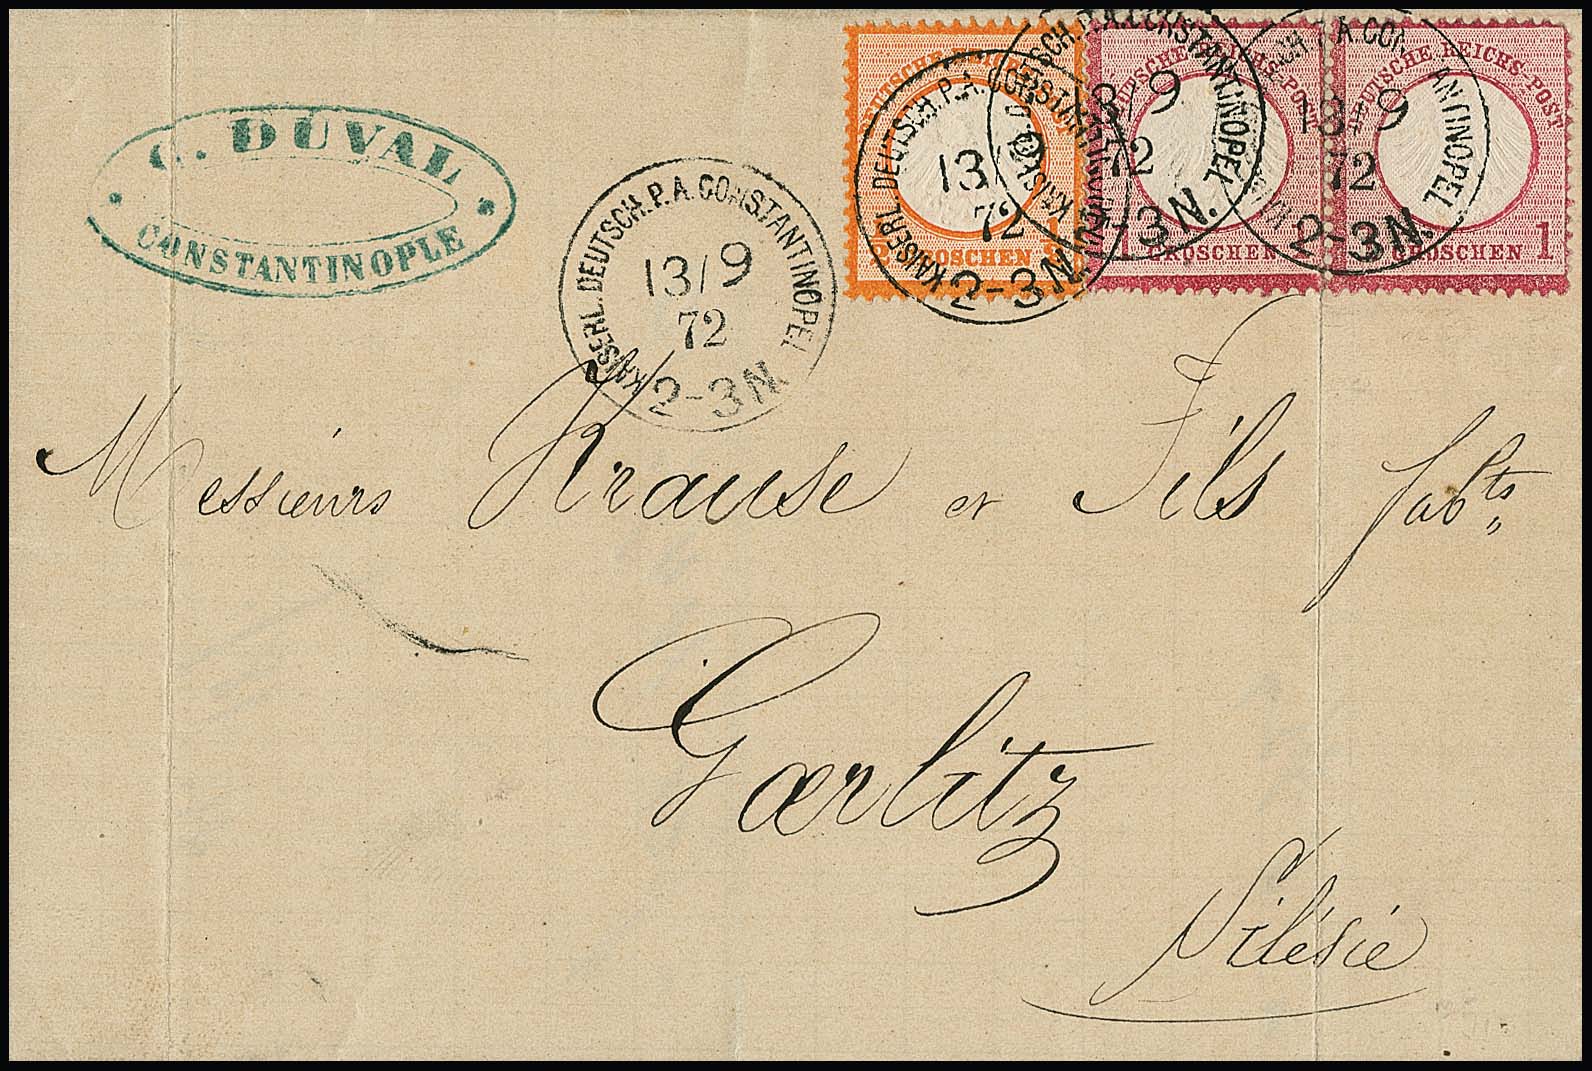 C. DUVAL
CONSTANTINOPLE
KAISERL. DEUTSCH. P. A. CONSTANTINOPEL
13/9
72
2-3N.
KAISERL. DEUTSCH. P. A. CONSTANTINOPEL
13/9
72
2-3N.
DEUTSCHE REICHS-POST
1/2 GROSCHEN 1/2
DEUTSCH. P. A. CONSTANTINOPEL
13/9
72
2-3N.
DEUTSCHE REICHS-POST
1 GROSCHEN 1
CONSTANTINOPEL
13/9
72
2-3N.
DEUTSCHE REICHS-POST
GROSCHEN 1
Messieurs Krause et Fils fabts
Goerlitz
Silésie